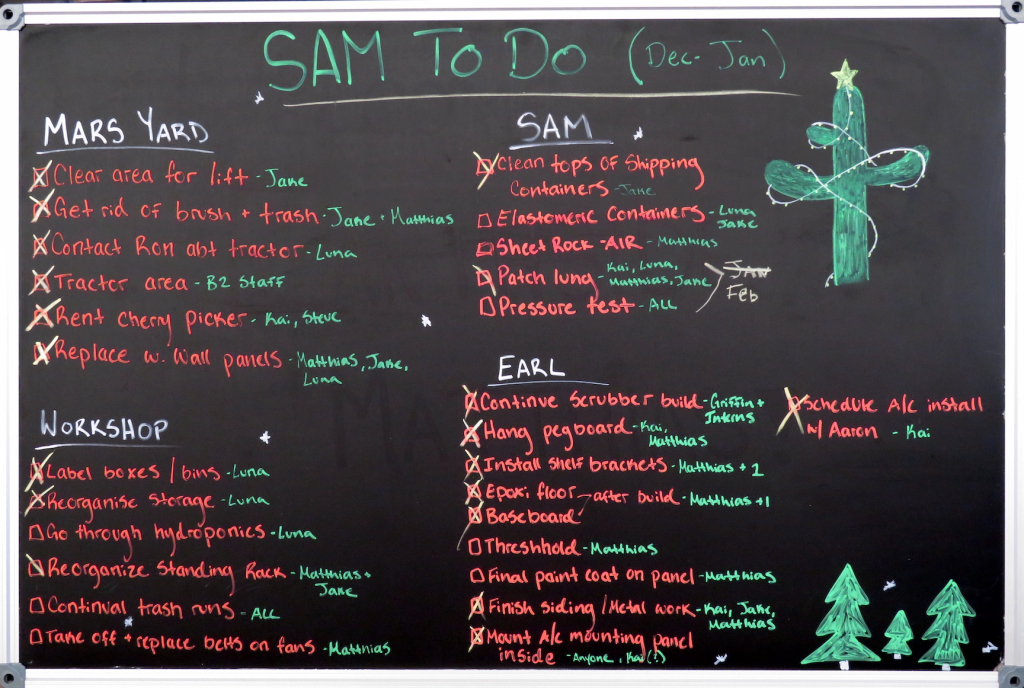 SAM TO DO (Dec-Jan)
MARS YARD
Clear area for lift - Jake
Get rid of brush + trash - Jake + Matthias
Contact Ron abt tractor - Luna
Tractor area - B2 Staff
Rent cherry picker - Kai, Steve
Replace w. Wall panels - Matthias, Jake,
Luna
WORKSHOP
Label boxes / bins - Luna
Reorganise Storage - Luna
Go through hydroponics - Luna
Reorganize Standing Rack - Matthias +
Jake
Continual trash runs - ALL
Take off + replace belts on fans - Matthias
SAM
Clean tops of Shipping
Containers - Jake
Elastomeric Containers - Luna
Jake
Sheet Rock - AIR - Matthias
Patch lung - Kai, Luna,
Matthias, Jake
Pressure test - ALL
Jan
Feb
EARL
Continue Scrubber build - Griffin +
Interns
Hang pegboard - Kai,
Matthias
Install shelf brackets - Matthias + 1
Epoxi floor - after build - Matthias +1
Baseboard
Threshhold - Matthias
Final paint coat on panel - Matthias
Finish siding / Metal work - Kai, Jake,
Matthias
Mount A/c mounting panel
inside - Anyone, Kai (?)
Schedule A/c install
w/ Aaron - Kai